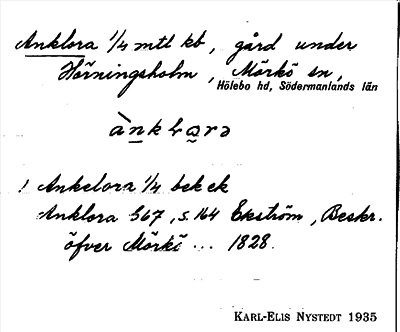 Anklora 1/4 mtl kb, gård under
Hörningsholm, Mörkö sn,
Hölebo hd, Södermanlands län
Ankelora 1/4
Anklora S. 164 Ekström, Beskr.
öfver Mörkö ... 1828.
KARL-ELIS NYSTEDT 1935